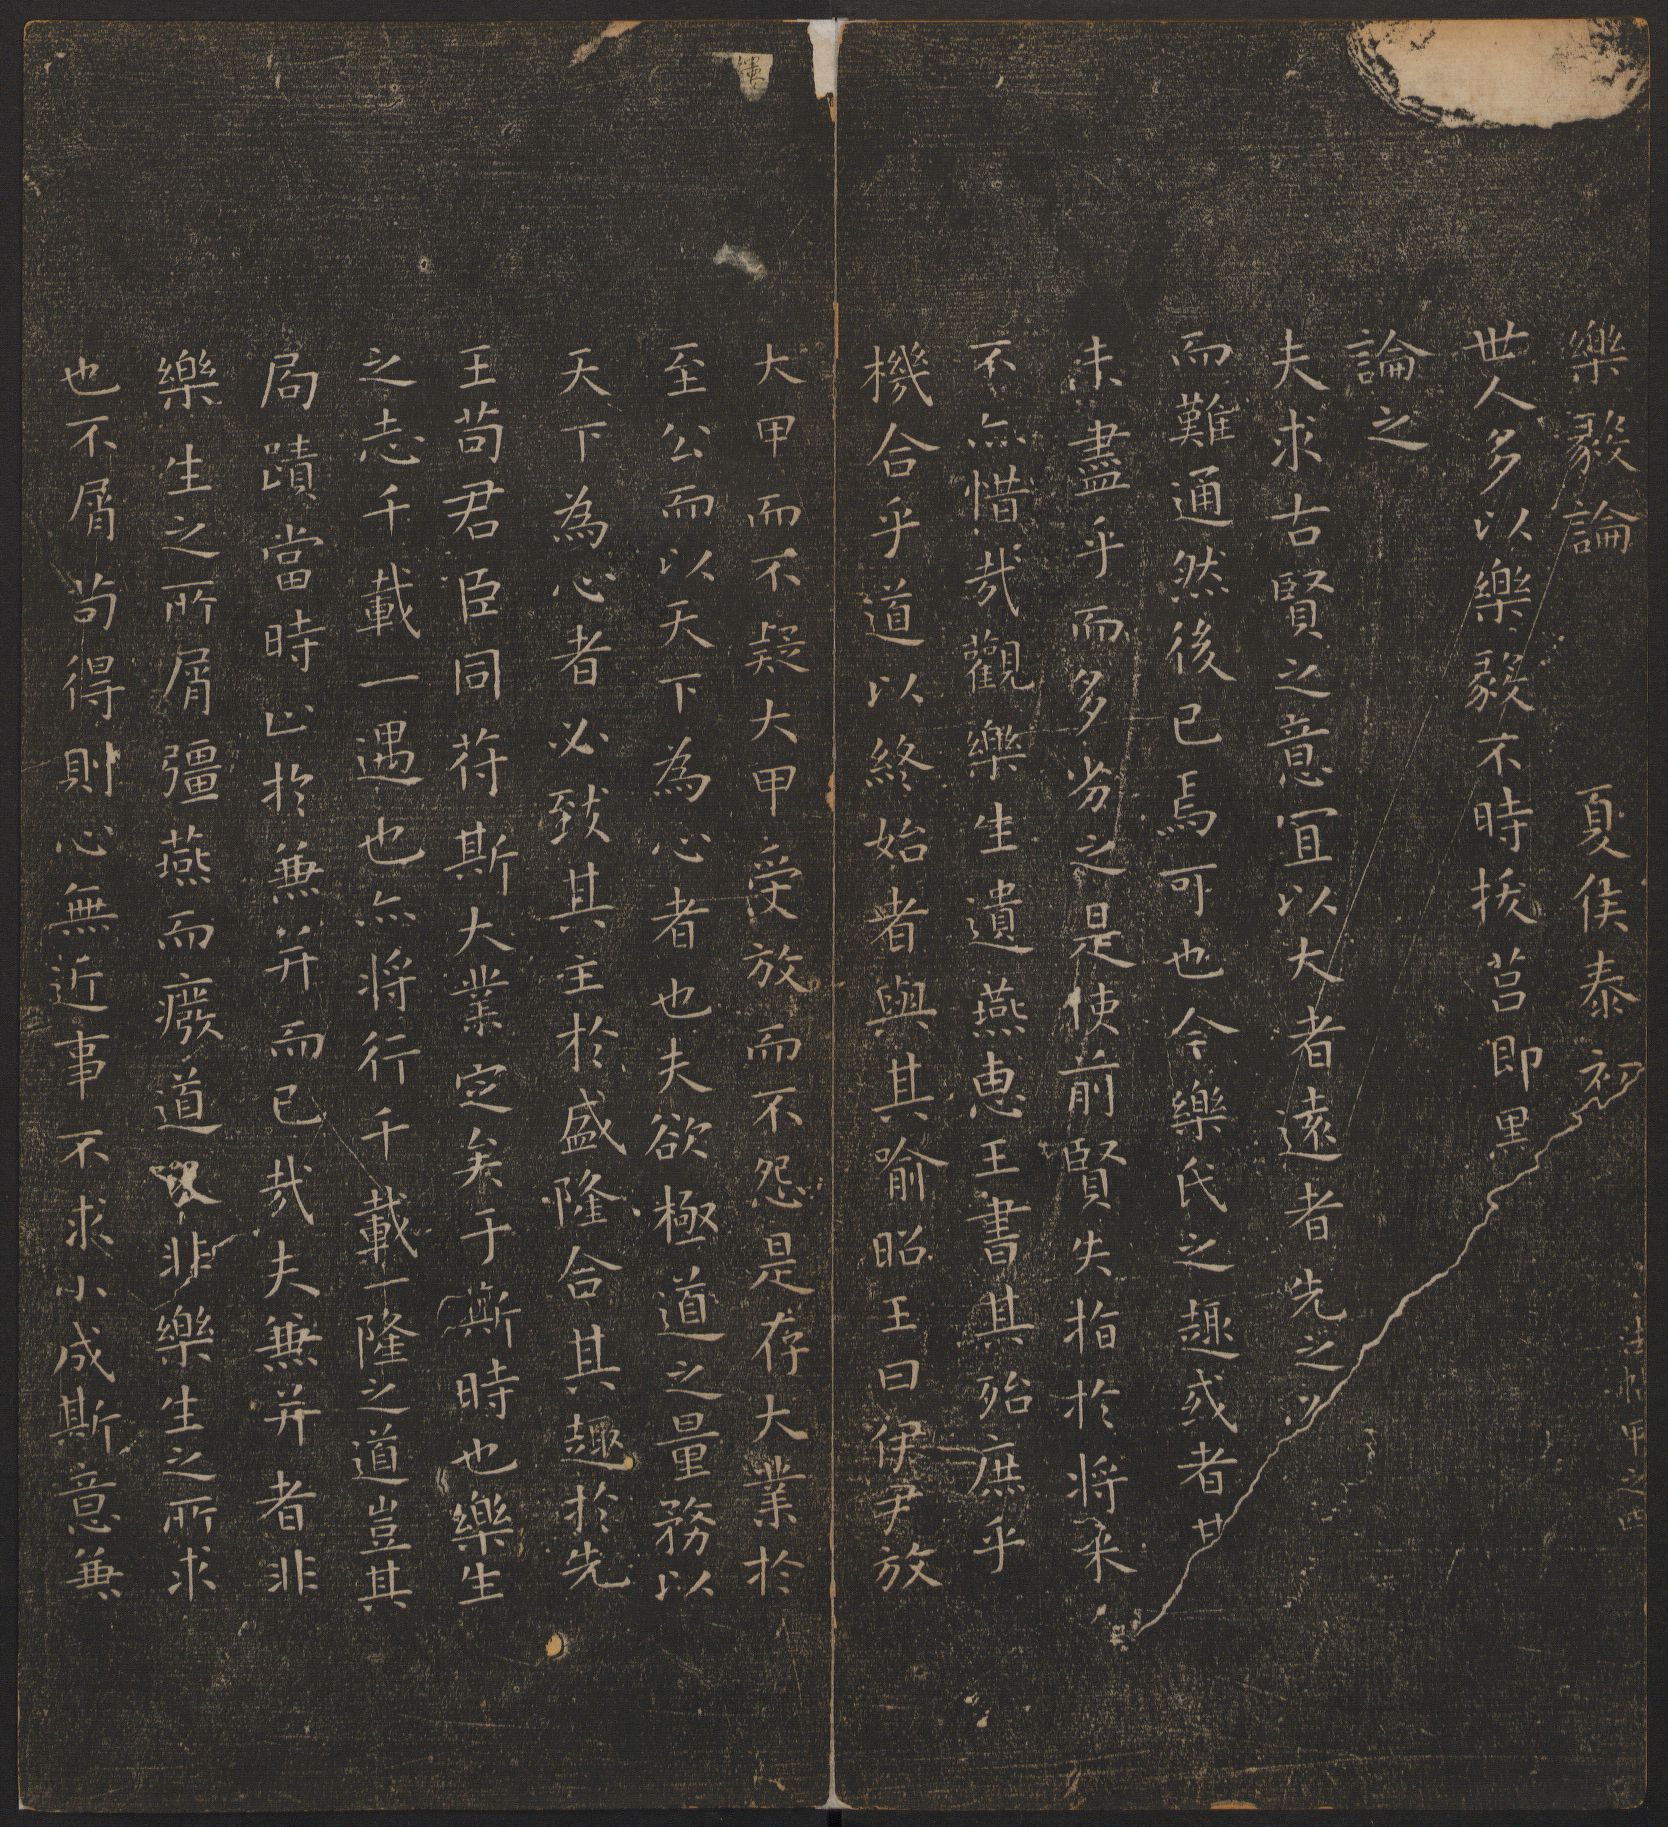 樂毅論 夏侯泰初
世人多以樂毅不時拔莒即墨
論之
夫求古賢之意宜以大者遠者先之以
而難通然後已焉可也今樂氏之趣或者甘
未盡乎而多劣之是使前賢失指於將來
不亦惜哉觀樂生遺燕惠王書其殆庶乎
機合乎道以終始者與其喻昭王曰伊尹放
大甲而不疑大甲受放而不怨是存大業於
至公而以天下為心者也夫欲極道之量務以
天下為心者必致其主於盛隆合其趣於先
王苟君臣同符斯大業定矣于斯時也樂生
之志千載一遇也亦將行千載一隆之道豈其
局蹟當時止於兼并而已哉夫兼并者非
樂生之所屑彊燕而癈道又非樂生之所求
也不屑苟得則心無近事不求小成斯意兼